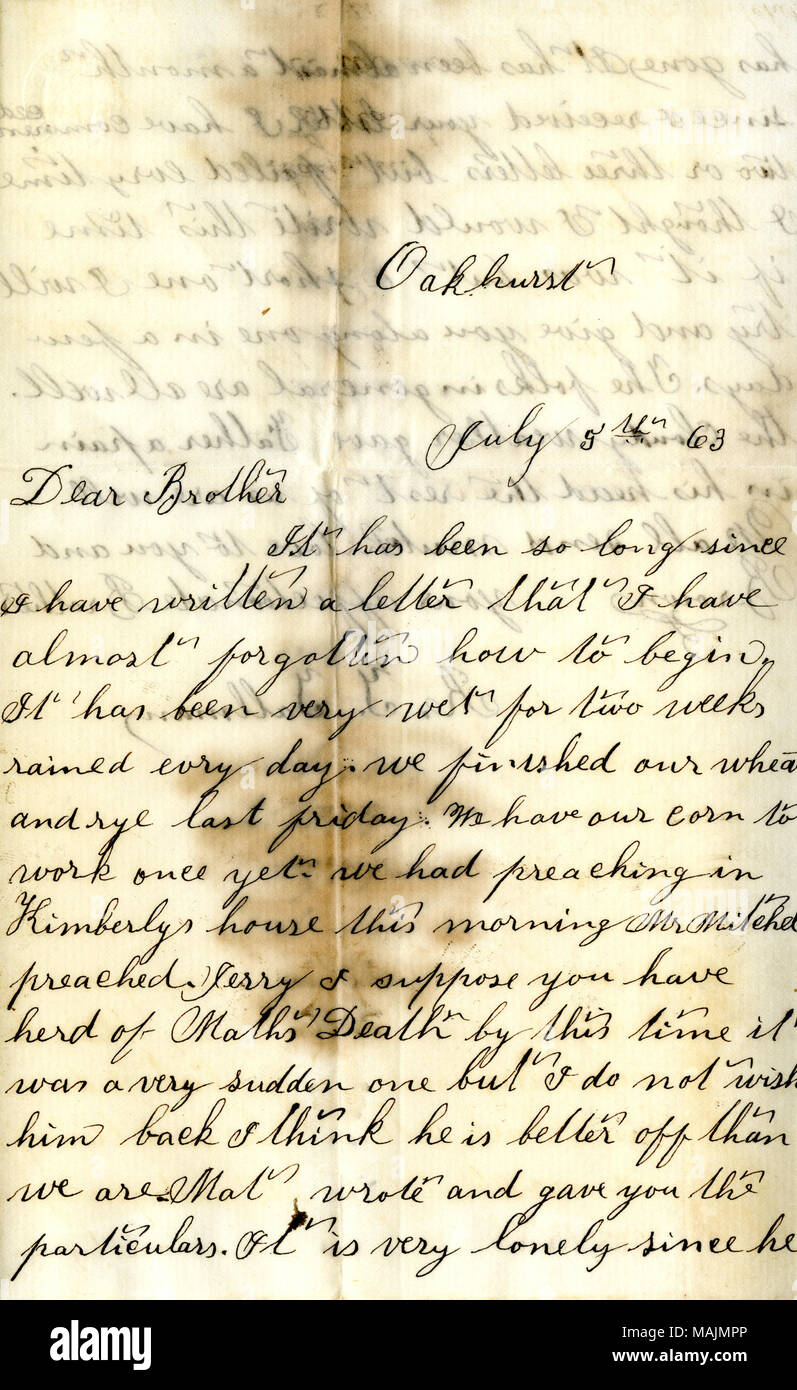 Oakhurst
July 5th 63
Dear Brother
It has been so long since
I have written a letter that I have
almost forgotten how to begin.
It has been very wet for two weeks
rained evry day. we finished our wheat
and rye last friday. We have our corn to
work once yet. we had preaching in
Kimberlys house this morning Mr Mitchel
preached. Jerry I suppose you have
herd of Maths Death by this time it
was a very sudden one but I do not wish
him back I think he is better off than
we are. Mat wrote and gave you the
particulars. It is very lonely since he
alamy
Image ID: MAJMPP
www.alamy.com